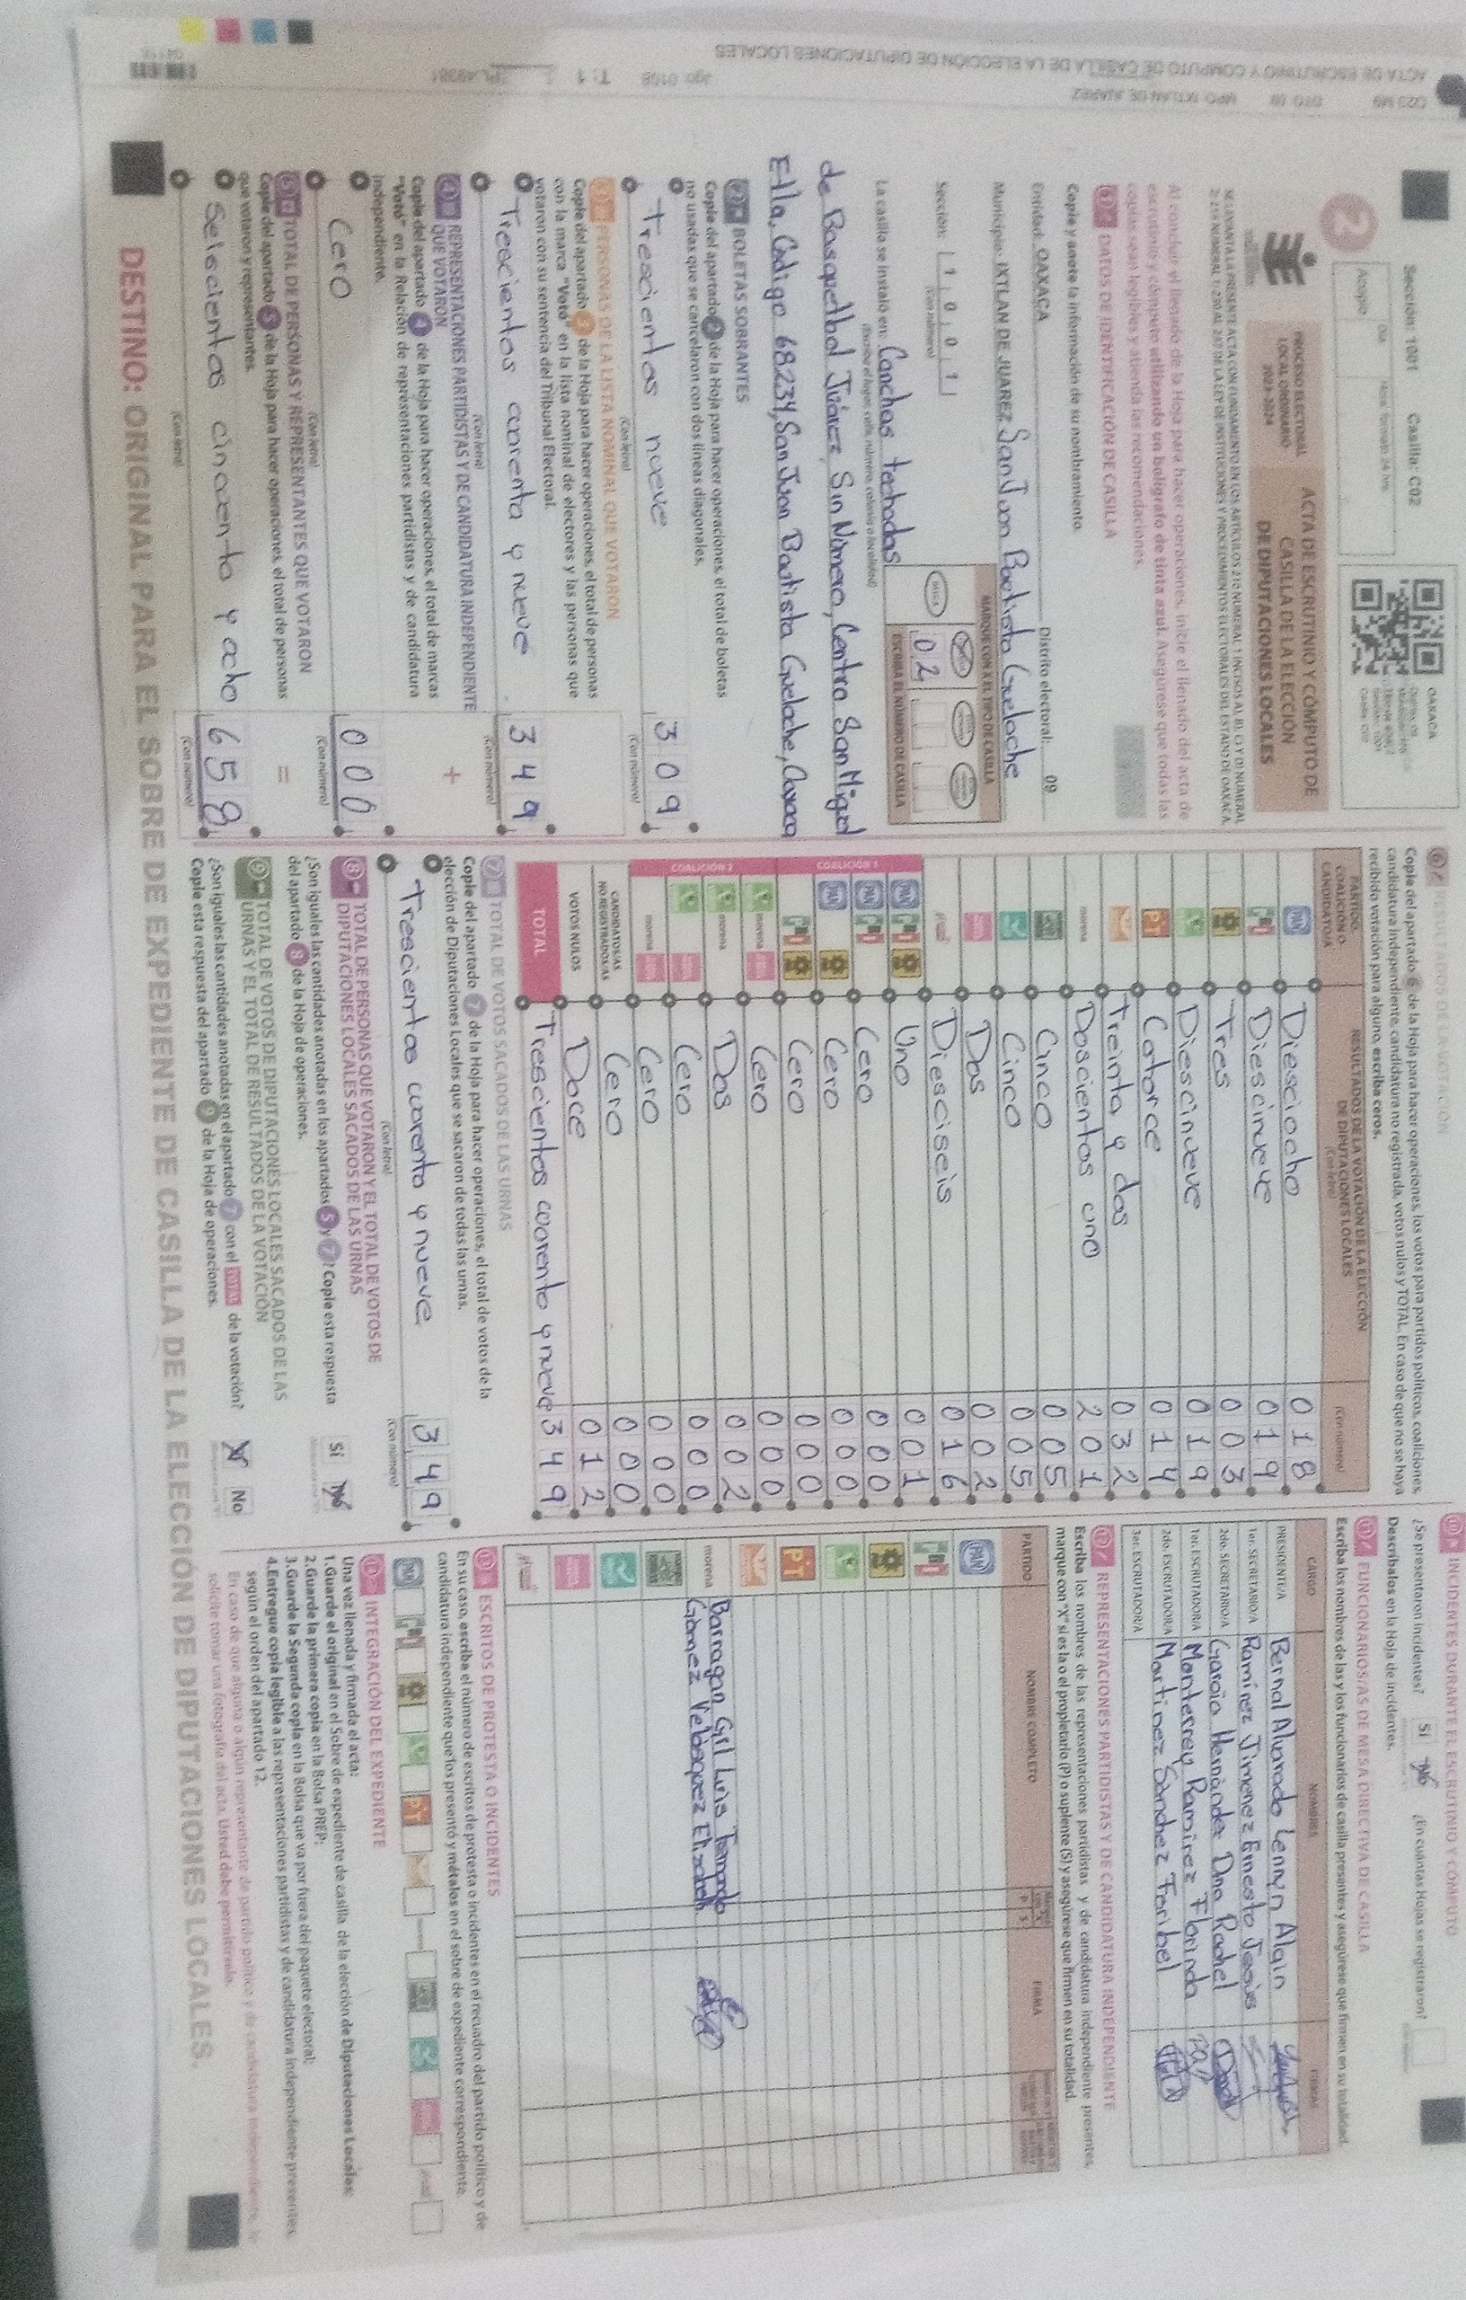 Sección: 1001 Casilla: C02
OAXACA
PROCESO ELECTORAL
LOCAL ORDINARIO
2023-2024
ACTA DE ESCRUTINIO Y CÓMPUTO DE
CASILLA DE LA ELECCIÓN
DE DIPUTACIONES LOCALES
Al concluir el llenado de la Hoja para hacer operaciones, inicie el llenado del acta de
escrutinio y cómputo utilizando un bolígrafo de tinta azul. Asegúrese que todas las
copias sean legibles y atienda las recomendaciones.
1 DATOS DE IDENTIFICACIÓN DE CASILLA
Copie y anote la información de su nombramiento.
Entidad: OAXACA Distrito electoral: 09
Municipio: IXTLAN DE JUAREZ San Juan Bautista Guelache
Sección: 1 0 0 1
(Con número)
MARQUE CON X EL TIPO DE CASILLA
ESCRIBA EL NÚMERO DE CASILLA
02
La casilla se instaló en: Canchas techadas
(Escriba el lugar, calle, número, colonia o localidad)
de Basquetbol Juárez, Sin Número, Centro San Miguel
Etla, Codigo 68234, San Juan Bautista Guelache, Oaxaca
2 BOLETAS SOBRANTES
Copie del apartado 2 de la Hoja para hacer operaciones, el total de boletas
no usadas que se cancelaron con dos líneas diagonales.
trescientas nueve 309
(Con letra) (Con número)
3 PERSONAS DE LA LISTA NOMINAL QUE VOTARON
Copie del apartado 3 de la Hoja para hacer operaciones, el total de personas
con la marca "Votó" en la lista nominal de electores y las personas que
votaron con su sentencia del Tribunal Electoral.
Trescientos cuarenta y nueve 349
(Con letra) (Con número)
4 REPRESENTACIONES PARTIDISTAS Y DE CANDIDATURA INDEPENDIENTE
QUE VOTARON
Copie del apartado 4 de la Hoja para hacer operaciones, el total de marcas
"Votó" en la Relación de representaciones partidistas y de candidatura
independiente.
Cero 000
(Con letra) (Con número)
5 TOTAL DE PERSONAS Y REPRESENTANTES QUE VOTARON
Copie del apartado 5 de la Hoja para hacer operaciones, el total de personas
que votaron y representantes.
Seiscientas cincuenta y ocho 658
(Con letra) (Con número)
Copie del apartado 6 de la Hoja para hacer operaciones, los votos para partidos políticos, coaliciones,
candidatura independiente, candidatura no registrada, votos nulos y TOTAL. En caso de que no se haya
recibido votación para alguno, escriba ceros.
PARTIDO, COALICIÓN O CANDIDATO/A
RESULTADOS DE LA VOTACIÓN DE LA ELECCIÓN
DE DIPUTACIONES LOCALES
(Con letra) (Con número)
PAN Diesciocho 018
Diescinueve 019
Tres 003
Diescinueve 019
PT Catorce 014
Treinta y dos 032
morena Doscientos uno 201
Cinco 005
Cinco 005
Dos 002
Diesciseis 016
COALICIÓN 1
Uno 001
Cero 000
Cero 000
Cero 000
COALICIÓN 2
Cero 000
Dos 002
Cero 000
Cero 000
CANDIDATOS/AS NO REGISTRADOS/AS Cero 000
VOTOS NULOS Doce 012
TOTAL Trescientos cuarenta y nueve 349
7 TOTAL DE VOTOS SACADOS DE LAS URNAS
Copie del apartado 7 de la Hoja para hacer operaciones, el total de votos de la
elección de Diputaciones Locales que se sacaron de todas las urnas.
Trescientos cuarenta y nueve 349
(Con letra) (Con número)
8 TOTAL DE PERSONAS QUE VOTARON Y EL TOTAL DE VOTOS DE
DIPUTACIONES LOCALES SACADOS DE LAS URNAS
¿Son iguales las cantidades anotadas en los apartados 5 y 7? Copie esta respuesta
del apartado 8 de la Hoja de operaciones. Sí No
9 TOTAL DE VOTOS DE DIPUTACIONES LOCALES SACADOS DE LAS
URNAS Y EL TOTAL DE RESULTADOS DE LA VOTACIÓN
¿Son iguales las cantidades anotadas en el apartado 7 con el TOTAL de la votación?
Copie esta respuesta del apartado 9 de la Hoja de operaciones. Sí No
10 INCIDENTES DURANTE EL ESCRUTINIO Y CÓMPUTO
¿Se presentaron incidentes? Sí No ¿En cuántas Hojas se registraron?
Descríbalos en la Hoja de incidentes.
11 FUNCIONARIOS/AS DE MESA DIRECTIVA DE CASILLA
Escriba los nombres de las y los funcionarios de casilla presentes y asegúrese que firmen en su totalidad.
CARGO NOMBRES FIRMAS
PRESIDENTE/A Bernal Alvarado Lennyn Alain
1er. SECRETARIO/A Ramírez Jimenez Ernesto Jesús
2do. SECRETARIO/A García Hernández Dna Rachel
1er. ESCRUTADOR/A Monterrey Ramirez Florinda
2do. ESCRUTADOR/A Martinez Sánchez Faribel
3er. ESCRUTADOR/A
12 REPRESENTACIONES PARTIDISTAS Y DE CANDIDATURA INDEPENDIENTE
Escriba los nombres de las representaciones partidistas y de candidatura independiente presentes,
marque con "X" si es la o el propietario (P) o suplente (S) y asegúrese que firmen en su totalidad.
PARTIDO NOMBRE COMPLETO FIRMA
PAN
PT
morena Barragan Gil Luis Fernando
Gomez Velasquez Elizabeth
13 ESCRITOS DE PROTESTA O INCIDENTES
En su caso, escriba el número de escritos de protesta o incidentes en el recuadro del partido político y de
candidatura independiente que los presentó y métalos en el sobre de expediente correspondiente.
INTEGRACIÓN DEL EXPEDIENTE
Una vez llenada y firmada el acta:
1. Guarde el original en el Sobre de expediente de casilla de la elección de Diputaciones Locales;
2. Guarde la primera copia en la Bolsa PREP;
3. Guarde la Segunda copia en la Bolsa que va por fuera del paquete electoral;
4. Entregue copia legible a las representaciones partidistas y de candidatura independiente presentes,
según el orden del apartado 12.
En caso de que alguna o algún representante de partido político y de candidatura independiente, le
solicite tomar una fotografía del acta, Usted debe permitírselo.
DESTINO: ORIGINAL PARA EL SOBRE DE EXPEDIENTE DE CASILLA DE LA ELECCIÓN DE DIPUTACIONES LOCALES.
ACTA DE ESCRUTINIO Y CÓMPUTO DE CASILLA DE LA ELECCIÓN DE DIPUTACIONES LOCALES